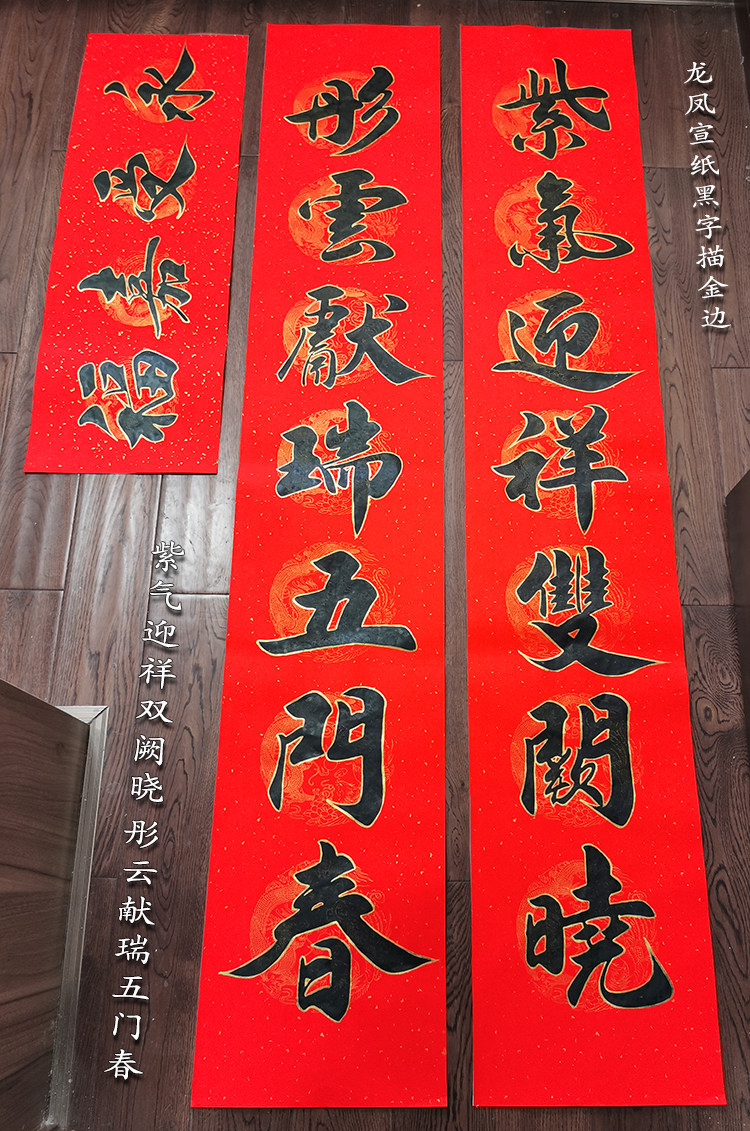 龙凤宣纸黑字描金边
紫氣迎祥雙闕曉
彤雲獻瑞五門春
永受嘉福
紫气迎祥双阙晓彤云献瑞五门春